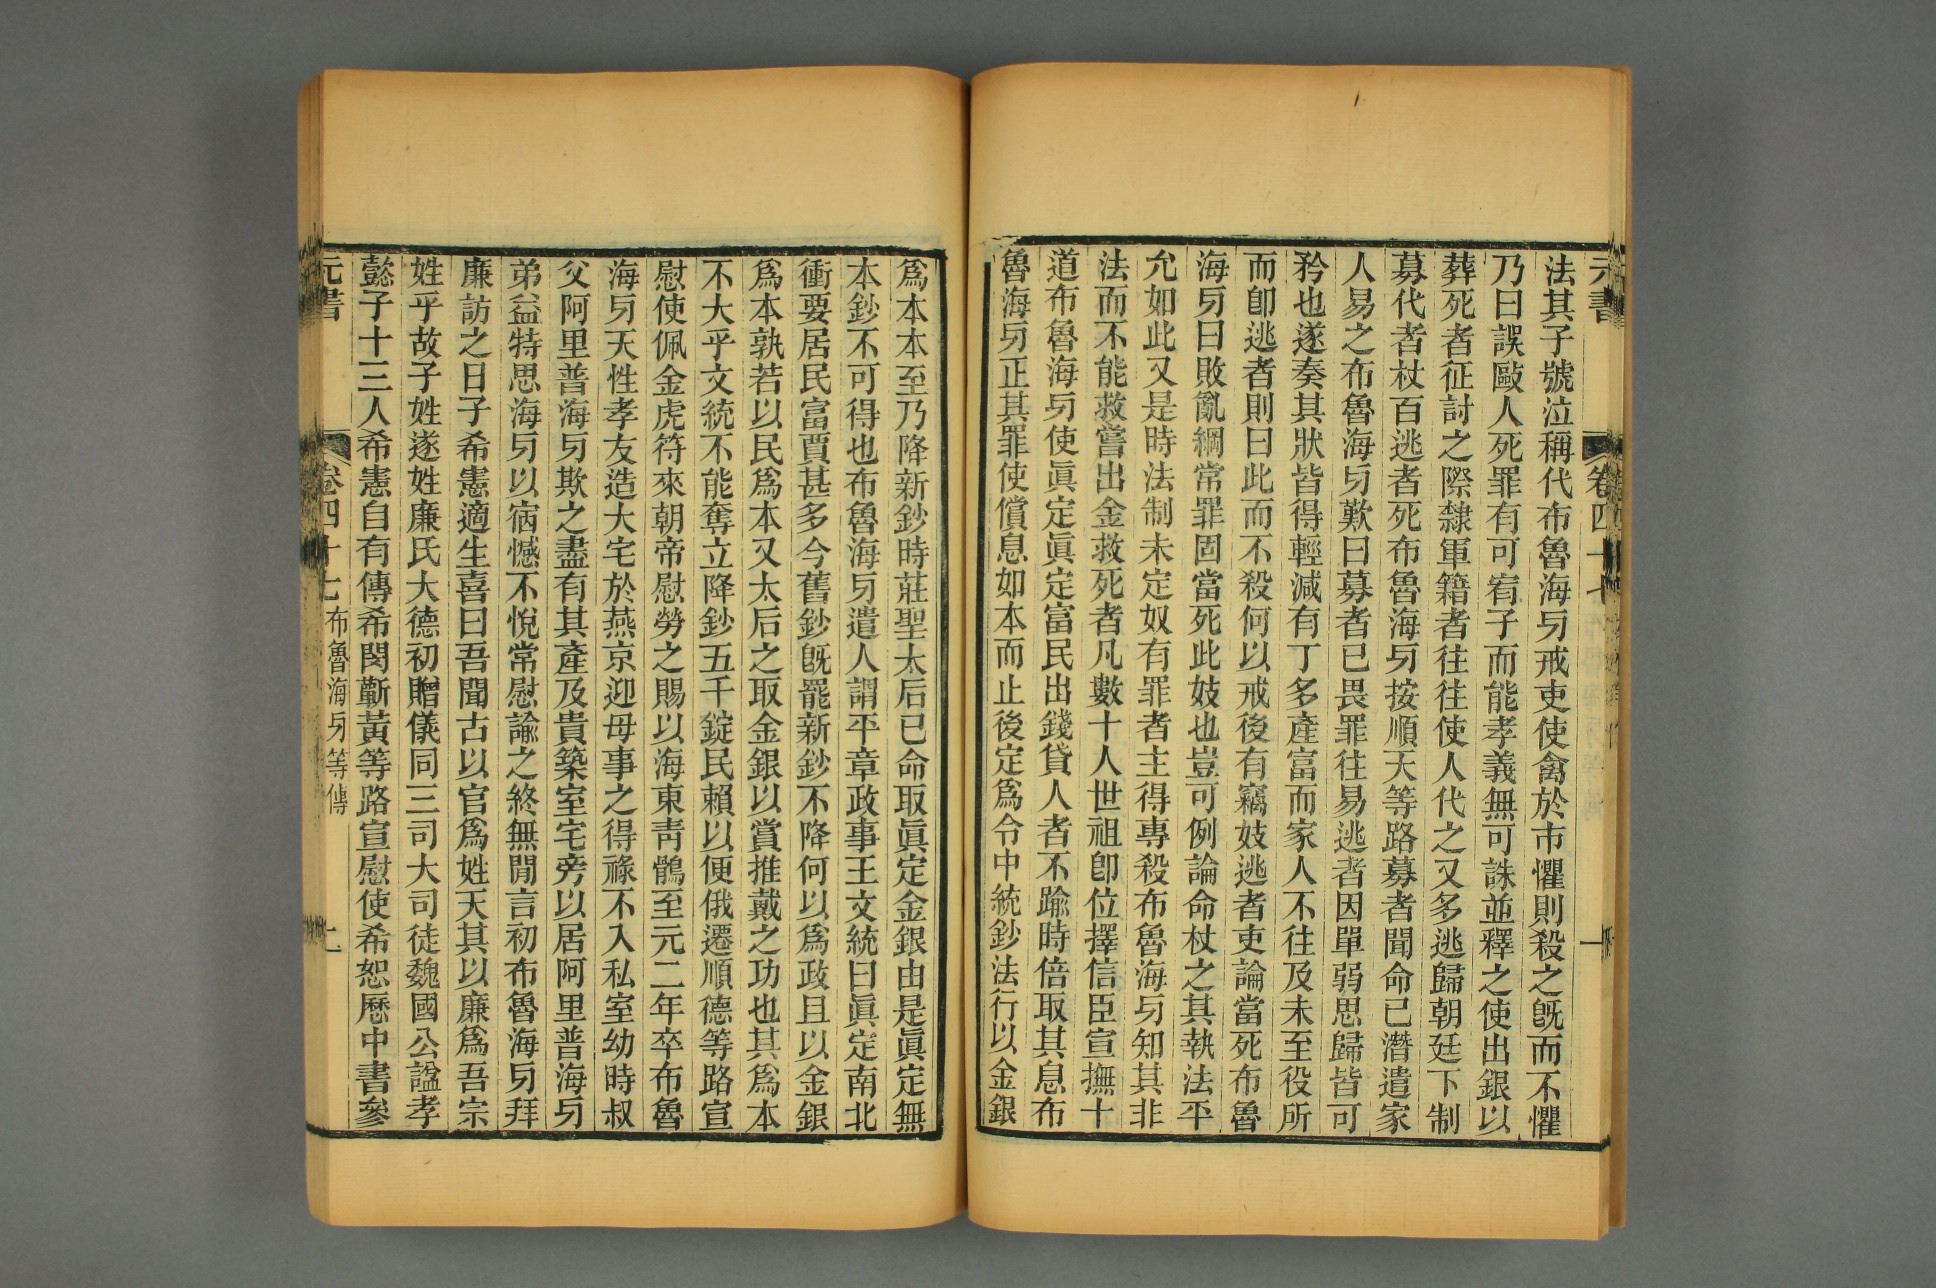 元書
卷四十七
法其子號泣稱代布魯海牙戒吏使禽於市懼則殺之旣而不懼
乃曰誤毆人死罪有可宥子而能孝義無可誅並釋之使出銀以
葬死者征討之際隸軍籍者往往使人代之又多逃歸朝廷下制
募代者杖百逃者死布魯海牙按順天等路募者聞命已潛遣家
人易之布魯海牙歎曰募者已畏罪往易逃者因單弱思歸皆可
矜也遂奏其狀皆得輕減有丁多產富而家人不往及未至役所
而卽逃者則曰此而不殺何以戒後有竊妓逃者吏論當死布魯
海牙曰敗亂綱常罪固當死此妓也豈可例論命杖之其執法平
允如此又是時法制未定奴有罪者主得專殺布魯海牙知其非
法而不能救嘗出金救死者凡數十人世祖卽位擇信臣宣撫十
道布魯海牙使眞定眞定富民出錢貸人者不踰時倍取其息布
魯海牙正其罪使償息如本而止後定爲令中統鈔法行以金銀
爲本本至乃降新鈔時莊聖太后已命取眞定金銀由是眞定無
本鈔不可得也布魯海牙遣人謂平章政事王文統曰眞定南北
衝要居民富賈甚多今舊鈔旣罷新鈔不降何以爲政且以金銀
爲本孰若以民爲本又太后之取金銀以賞推戴之功也其爲本
不大乎文統不能奪立降鈔五千錠民賴以便俄遷順德等路宣
慰使佩金虎符來朝帝慰勞之賜以海東靑鶻至元二年卒布魯
海牙天性孝友造大宅於燕京迎母事之得祿不入私室幼時叔
父阿里普海牙欺之盡有其產及貴築室宅旁以居阿里普海牙
弟益特思海牙以病憾不悅常慰諭之終無閒言初布魯海牙拜
廉訪之日子希憲適生喜曰吾聞古以官爲姓天其以廉爲吾宗
姓乎故子姓遂姓廉氏大德初贈儀同三司大司徒魏國公諡孝
懿子十三人希憲自有傳希閔蘄黃等路宣慰使希恕歷中書參
元書
卷四十七 布魯海牙等傳
二